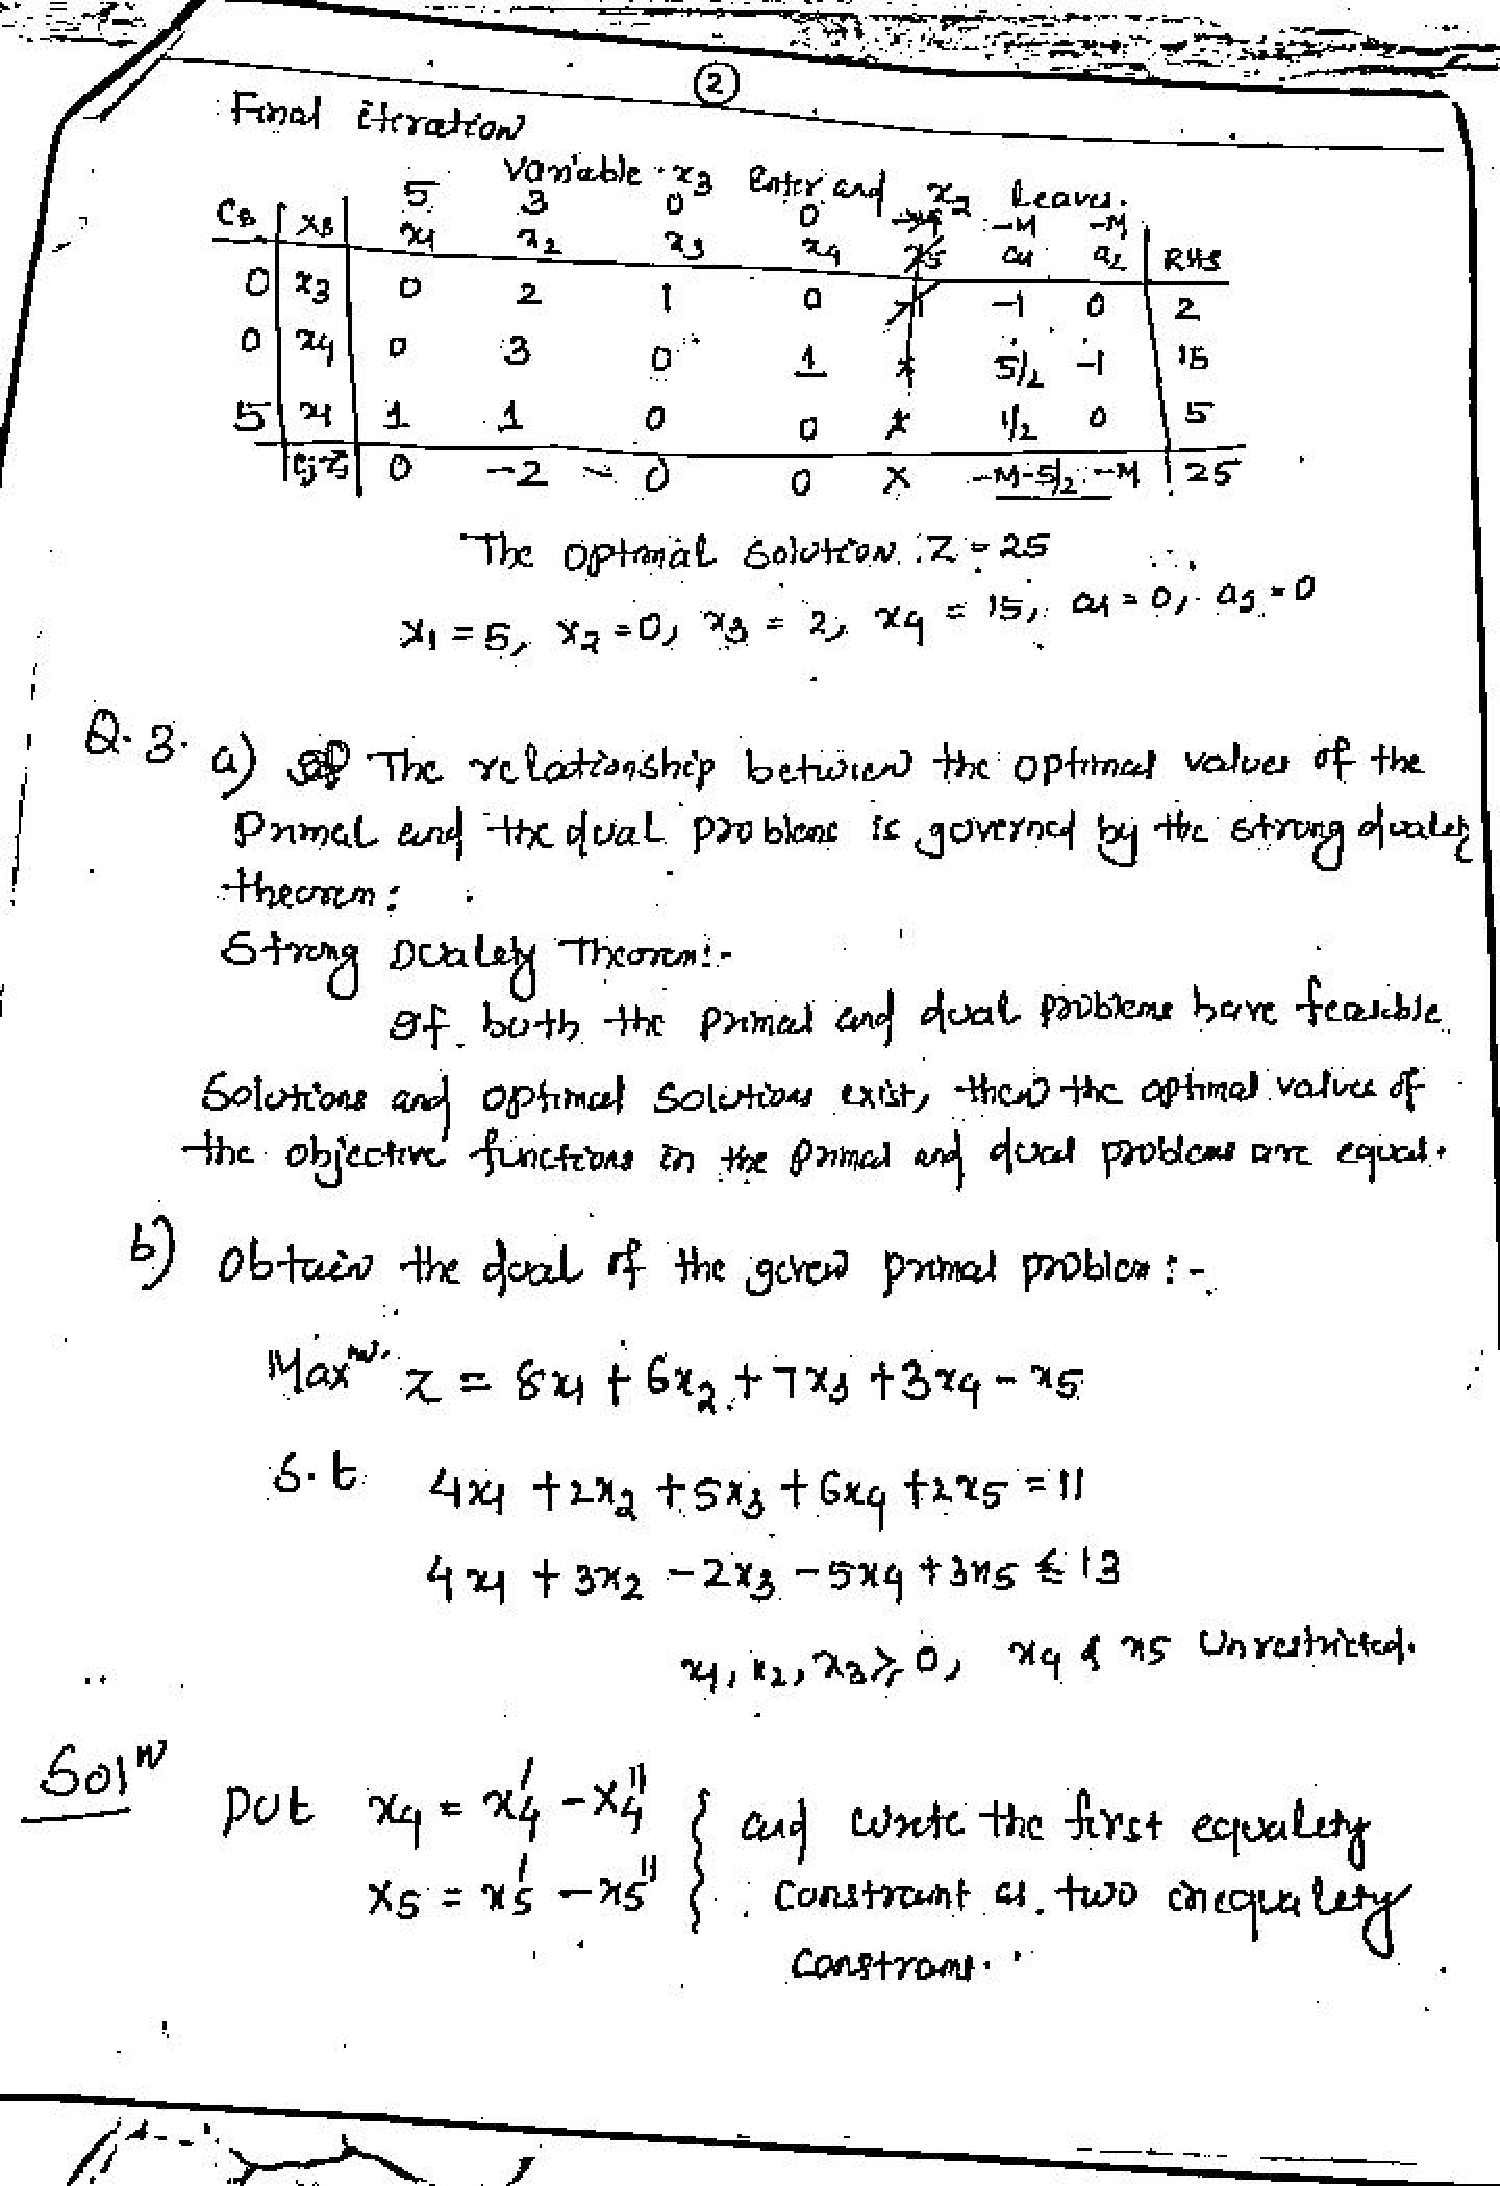 ②
Final iteration
Variable x3 Enter and x2 Leaves.
5 3 0 0 -M -M
CB XB x1 x2 x3 x4 x5 a1 a2 RHS
0 x3 0 2 1 0 -1 0 2
0 x4 0 3 0 1 x 5/2 -1 15
5 x1 1 1 0 0 x 1/2 0 5
Cj-Zj 0 -2 0 0 x -M-5/2 -M 25
The optimal solution Z = 25
x1 = 5, x2 = 0, x3 = 2, x4 = 15, a1 = 0, a2 = 0
Q.3. a) The relationship between the optimal values of the
Primal and the dual problems is governed by the strong duality
theorem:
Strong Duality Theorem:-
If both the primal and dual problems have feasible
Solutions and optimal solutions exist, then the optimal values of
the objective functions in the primal and dual problems are equal.
b) Obtain the dual of the given primal problem:-
Max^m Z = 8x1 + 6x2 + 7x3 + 3x4 - x5
S.t 4x1 + 2x2 + 5x3 + 6x4 + 2x5 = 11
4x1 + 3x2 - 2x3 - 5x4 + 3x5 ≤ 13
x1, x2, x3 ≥ 0, x4 & x5 Unrestricted.
Sol^n Put x4 = x4' - x4'' } and write the first equality
x5 = x5' - x5'' } constraint as two inequality
constraint.